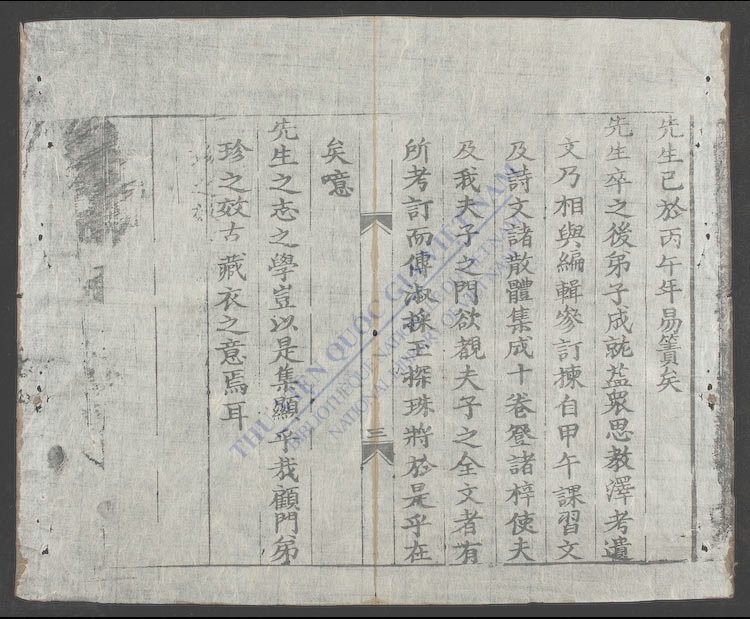 先生已於丙午年易簀矣
先生卒之後弟子成就益衆思教澤考遺
文乃相與編輯參訂揀自甲午課習文
及詩文諸散體集成十卷登諸梓使夫
及我夫子之門欲覩夫子之全文者有
所考訂而傳淑採玉探珠將於是乎在
三
矣噫
先生之志之學豈以是集顯乎哉顧門弟
珍之效古藏衣之意焉耳
THƯ VIỆN QUỐC GIA VIỆT NAM
BIBLIOTHÈQUE NATIONALE DU VIETNAM
NATIONAL LIBRARY OF VIETNAM